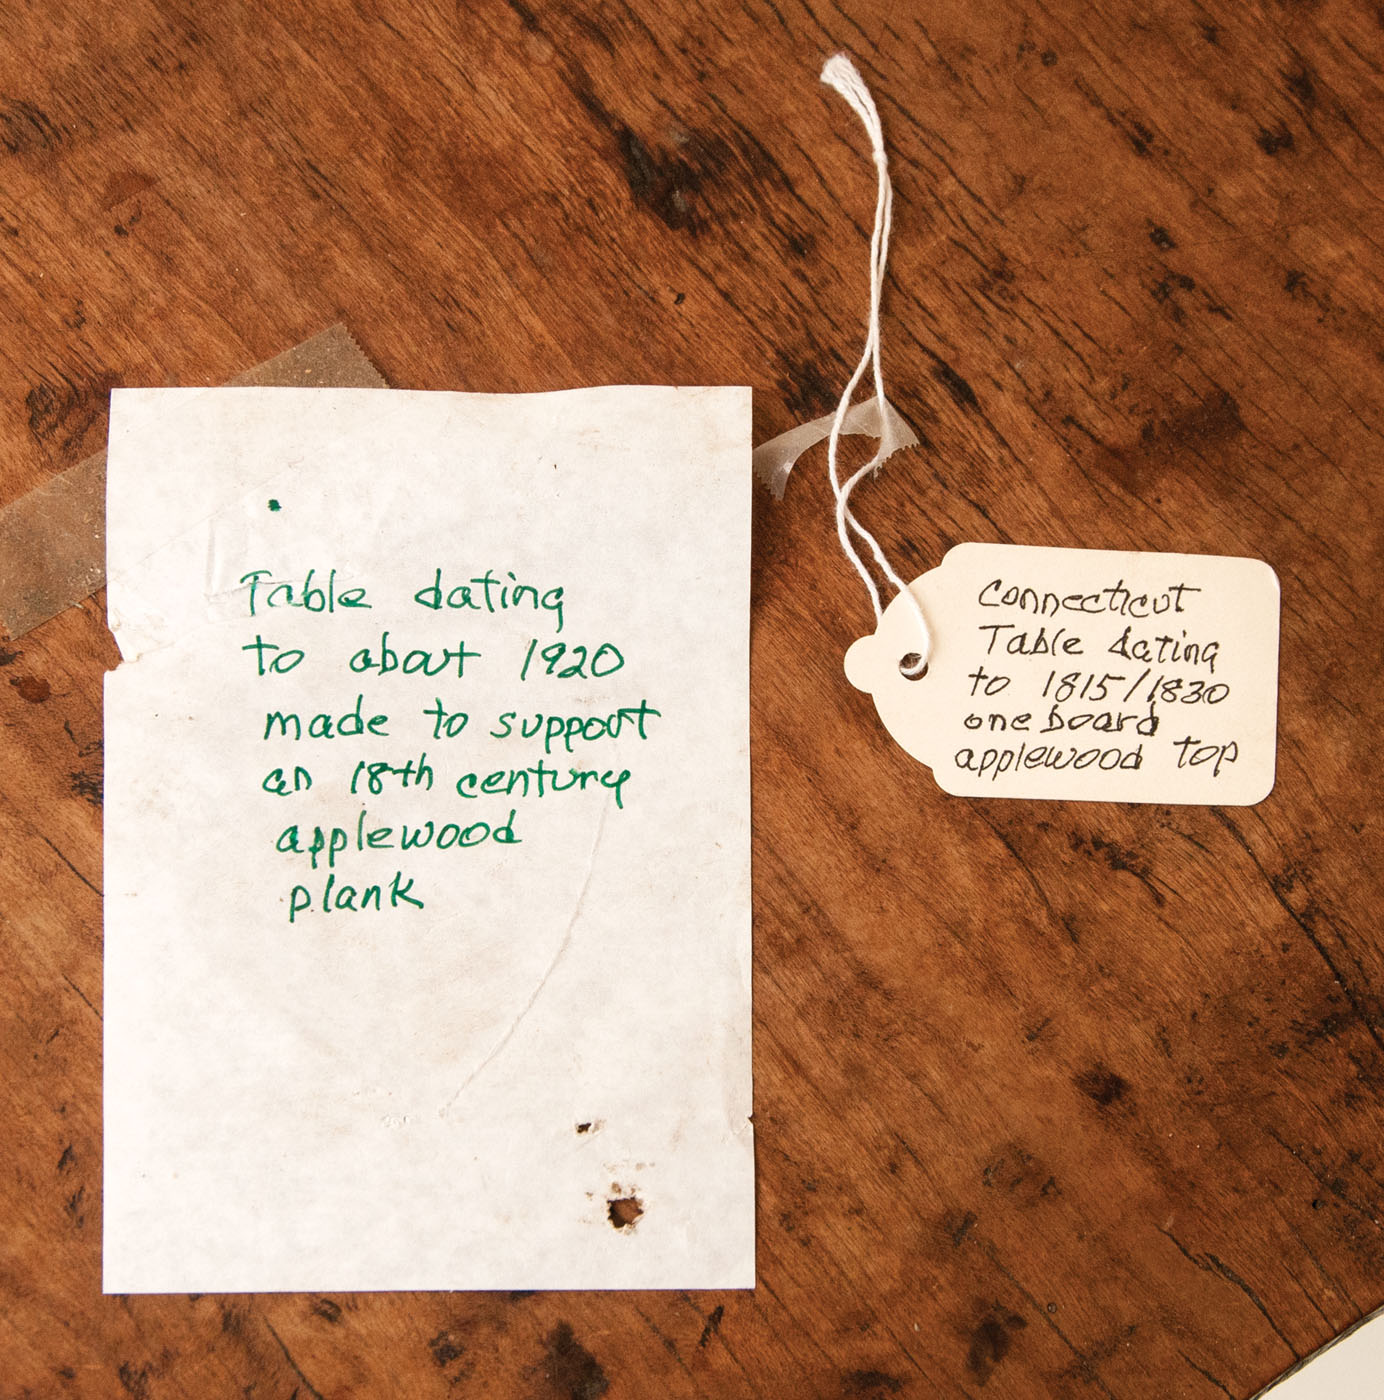 Table dating
to about 1920
made to support
an 18th century
applewood
plank
Connecticut
Table dating
to 1815/1830
one board
applewood top